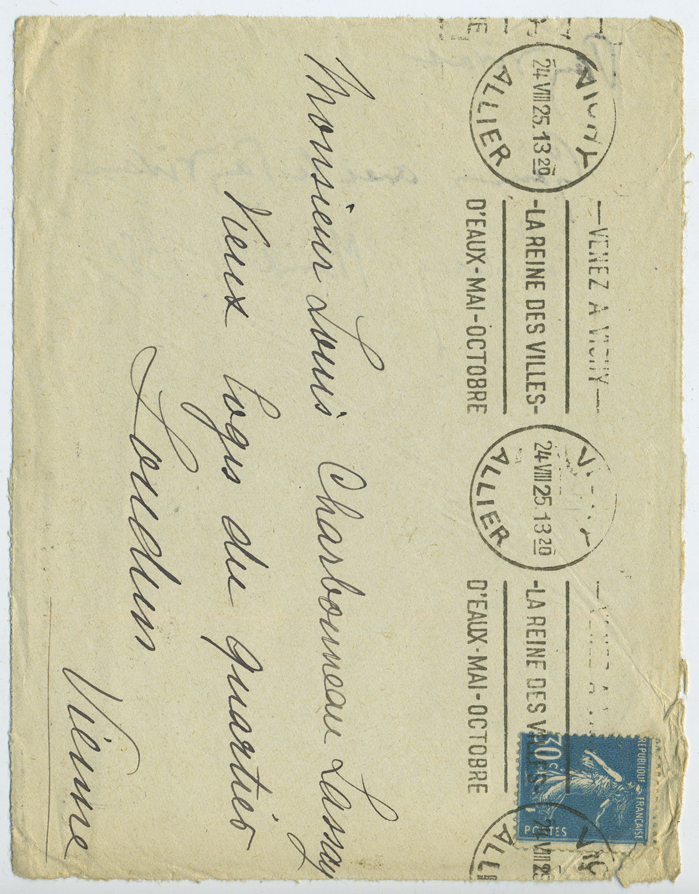 VICHY
24 VIII 25. 13 20
ALLIER
—VENEZ A VICHY—
-LA REINE DES VILLES-
D'EAUX-MAI-OCTOBRE
VICHY
24 VIII 25. 13 20
ALLIER
-LA REINE DES VILLES-
D'EAUX-MAI-OCTOBRE
RÉPUBLIQUE FRANÇAISE
30c
POSTES
Monsieur Louis Charbonneau Lassay
Vieux logis du quartier
Loudun
Vienne